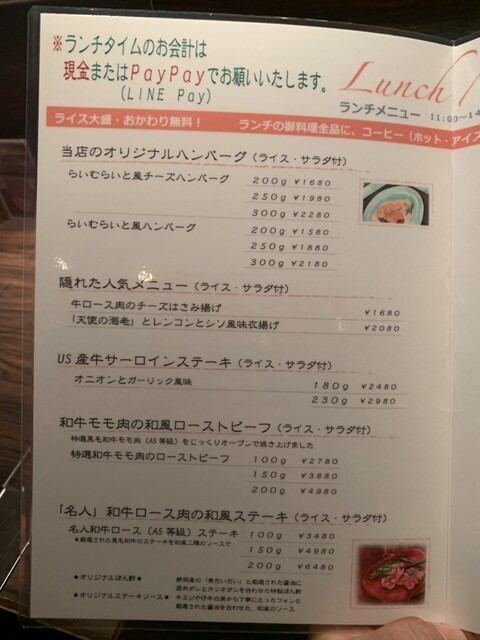 ※ランチタイムのお会計は
現金またはPayPayでお願いいたします。
(LINE Pay)
Lunch
ランチメニュー 11:00～14
ライス大盛・おかわり無料！ ランチの御料理全品に、コーヒー（ホット・アイス
当店のオリジナルハンバーグ（ライス・サラダ付）
らいむらいと風チーズハンバーグ 200g ¥1680
250g ¥1980
300g ¥2280
らいむらいと風ハンバーグ 200g ¥1580
250g ¥1880
300g ¥2180
隠れた人気メニュー（ライス・サラダ付）
牛ロース肉のチーズはさみ揚げ ¥1680
「天使の海老」とレンコンとシソ風味衣揚げ ¥2080
US産牛サーロインステーキ（ライス・サラダ付）
オニオンとガーリック風味 180g ¥2480
230g ¥2980
和牛モモ肉の和風ローストビーフ（ライス・サラダ付）
特選黒毛和牛モモ肉（A5等級）をじっくりオーブンで焼き上げました
特選和牛モモ肉のローストビーフ 100g ¥2780
150g ¥3880
200g ¥4980
「名人」和牛ロース肉の和風ステーキ（ライス・サラダ付）
名人和牛ロース（A5等級）ステーキ 100g ¥3480
★厳選された黒毛和牛のステーキを和風二種のソースで
150g ¥4980
200g ¥6480
★オリジナルぽん酢 静岡産の「来だいだい」と厳選された醤油に
昆布ダシとカツオダシを合わせた特製ぽん酢
★オリジナルステーキソース 牛スジや仔牛の骨から丁寧にとったフォンと
厳選された醤油を合わせた、和風のソース